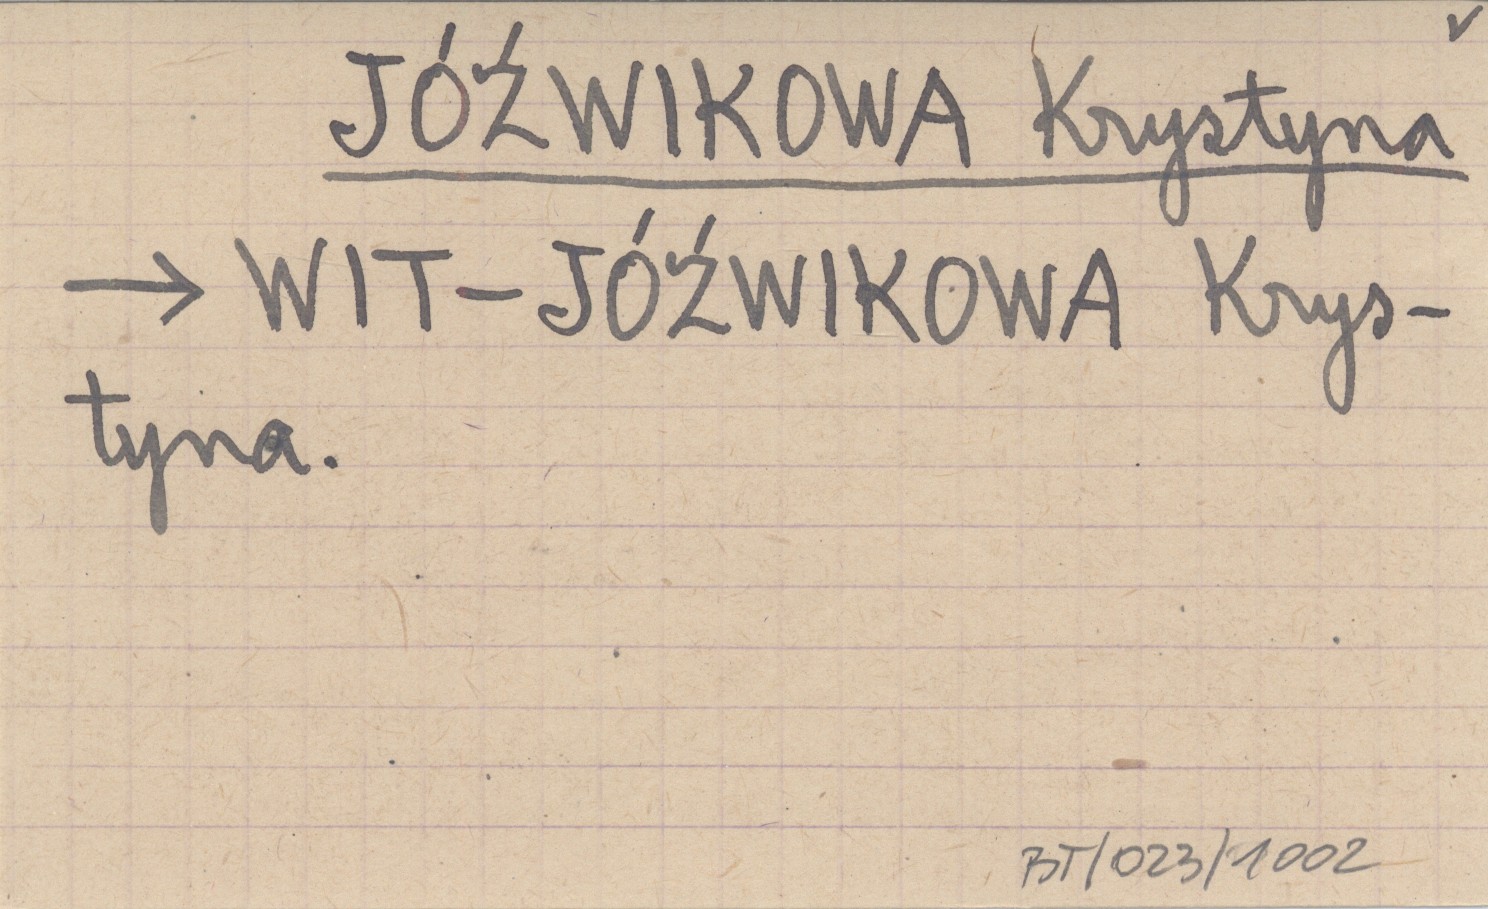 ✓
JÓŹWIKOWA Krystyna
→ WIT-JÓŹWIKOWA Krys-
tyna.
BT/023/1002